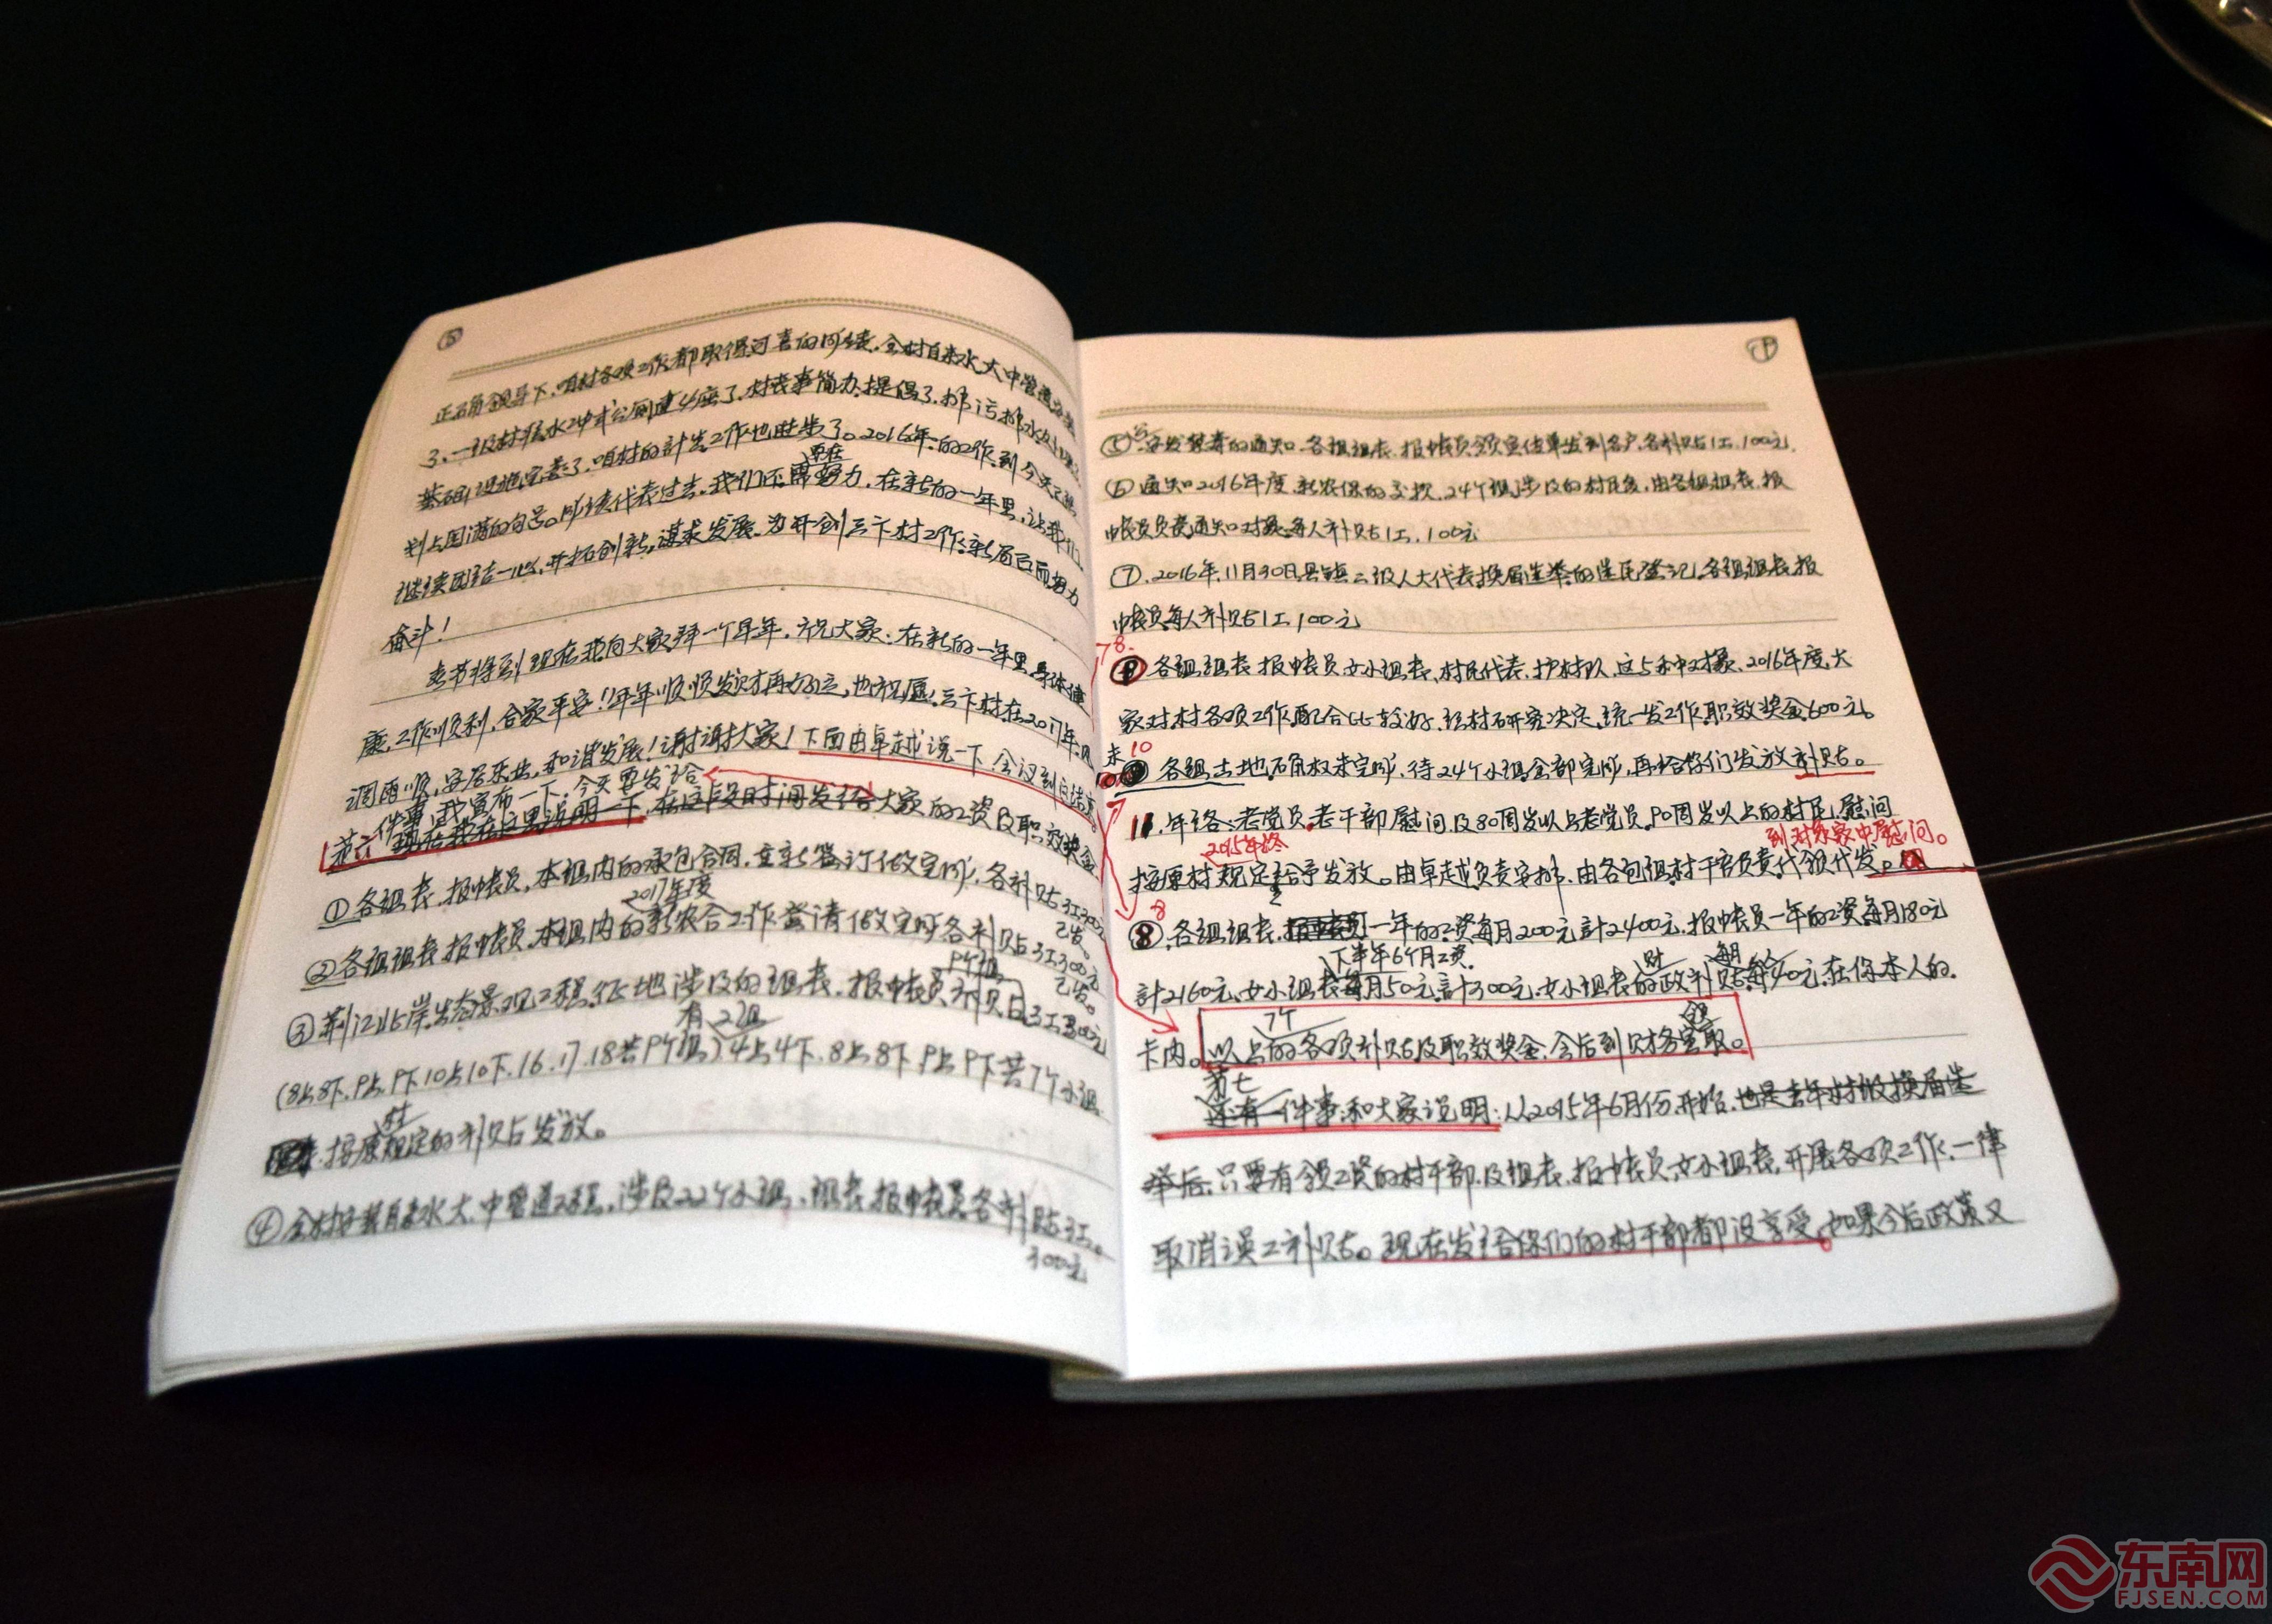 正确领导下,咱村各项工作都取得可喜的成绩.全村自来水大中管道安装
了.一级村饮水冲式公厕建 座了.村丧事简办.提倡了.排污排水
基础设施完善了.咱村的计生工作也进步了。2016年的工作,到今天已经
划上圆满的句号。成绩代表过去,我们还要再努力,在新的一年里,让我们
继续团结一心,开拓创新,谋求发展.为开创三卞村工作新局面而努力
奋斗!
春节将到 现在我向大家拜一个早年.祝大家:在新的一年里.身体健
康.工作顺利,合家平安!年年顺顺发财再 ,也祝愿三卞村在2017年风
调雨顺,安居乐业,和谐发展!谢谢大家!下面由卓越说一下.会议到问结束
第六件事,我宣布一下,今天要发给
现在我在这里说明一下,在这段时间发给大家的工资及职效奖金
①各组长、报帐员,本组内的承包合同.重新签订做完成,各补贴3工300元 已发。
2017年度
②各组组长报帐员.本组内的新农合工作登请做完成各补贴3工300元 已发。
9个组
③荆江北岸生态景观工程.征地涉及的组长.报帐员补贴各3工300元
有 2组
(8上8下.9上.9下10上10下.16.17.18共9个组)4上4下.8上8下9上9下共7个小组.
村
按原规定的补贴发放。
④全村安装自来水大.中管道工程,涉及22个小组、组长报帐员各补贴3工。
300元
⑤ 安发禁毒的通知.各组组长.报帐员领宣传单发到各户.各补贴1工.100元.
⑥通知2016年度.新农保的交款.24个组涉及的村民多,由各组组长.报
帐员负责通知对象.每人补贴1工.100元
⑦.2016年11月30日县镇二级人大代表换届选举的选民登记.各组组长报
帐员每人补贴1工100元
78.
⑨各组组长 报帐员 女小组长.村民代表.护村队.这5种对象.2016年度大
家对村各项工作配合比较好.经村研究决定.统一发工作职效奖金600元。
未 10
各组土地确权未完成.待24个小组全部完成,再给你们发放补贴。
11.年终:老党员.老干部慰问.及80周岁以上老党员.90周岁以上的村民.慰问
2015年终 到对象家中慰问。
按原村规定给予发放。由卓越负责安排.由各包组村干部负责代领代发。
8
⑧.各组组长.报帐员一年的工资每月200元計2400元.报帐员一年的工资每月180元
下半年6个月工资. 财 每月
計2160元.女小组长每月50元計300元.女小组长的政补贴每 40元.在你本人的.
7个 领
卡内。以上的各项补贴及职效奖金.会后到财务室取。
第七
还有一件事和大家说明:从2015年6月份开始.也是去年村级换届选
举后.只要有领工资的村干部.及组长.报帐员.女小组长.开展各项工作.一律
取消误工补贴。现在发给你们的村干部都没享受.如果今后政策又
东南网
FJSEN.COM